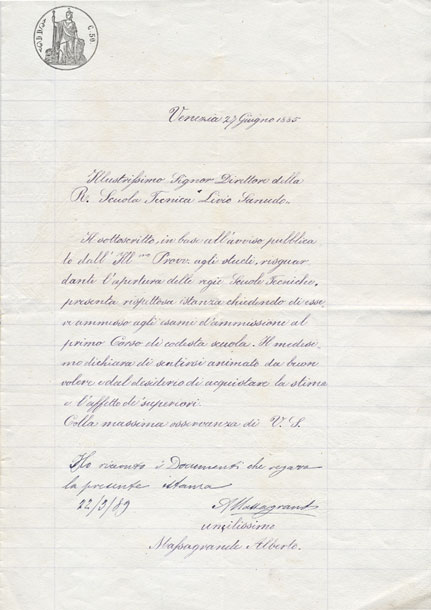 C. 50
Venezia 27 Giugno 1885
Illustrissimo Signor Direttore della
R. Scuola Tecnica "Livio Sanudo.
Il sottoscritto, in base all'avviso pubblica
to dall' Ill.mo Provv. agli studi, risguar
dante l'apertura delle regie Scuole Tecniche,
presenta rispettosa istanza chiedendo di esse
re ammesso agli esami d'ammissione al
primo Corso di codesta scuola. Il medesi
mo dichiara di sentirsi animato da buon
volere e dal desiderio di acquistare la stima
e l'affetto de' superiori.
Colla massima osservanza di V. S.
Ho ricevuto i Documenti che
la presente istanza
22/9/89
umilissimo
Massagrande Alberto.